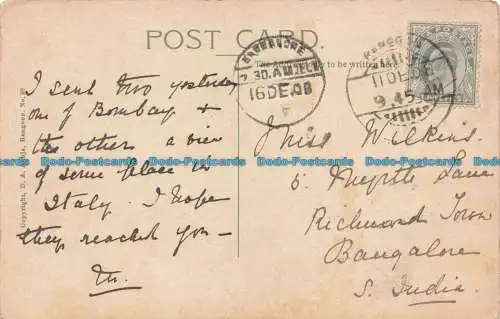 POST CARD.
The Address only to be written here.
7.30.AM
16 DE.08
11 DE.08
9.45.AM
I sent two yesterday
one of Bombay &
the others a view
of some place in
Italy. I hope
they reached you —
Miss Wilkins
5. Myrtle Lane
Richmond Town
Bangalore
S. India.
Copyright, D. A. Rangoon, No.
Dodo-Postcards Dodo-Postcards Dodo-Postcards Dodo-Postcards Dodo-Postcards Dodo-Postcards